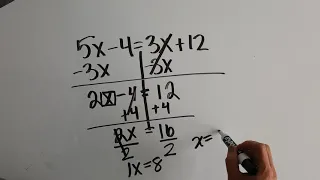 5x-4=3x+12
-3x -3x
2x-4=12
+4 +4
2x = 16
2 2
1x=8
x=